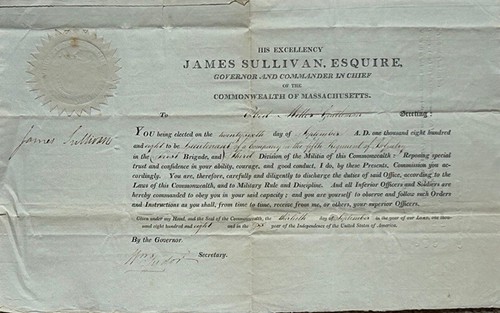 HIS EXCELLENCY
JAMES SULLIVAN, ESQUIRE,
GOVERNOR AND COMMANDER IN CHIEF
OF THE
COMMONWEALTH OF MASSACHUSETTS.
To Gentleman Greeting:
James Sullivan
YOU being elected on the day of September A. D. one thousand eight hundred
and eight to be Lieutenant of a Company in the fifth Regiment of Infantry
in the Brigade, and Third Division of the Militia of this Commonwealth; Reposing special
trust and confidence in your ability, courage, and good conduct. I do, by these Presents, Commission you ac-
cordingly. You are, therefore, carefully and diligently to discharge the duties of said Office, according to the
Laws of this Commonwealth, and to Military Rule and Discipline. And all Inferior Officers and Soldiers are
hereby commanded to obey you in your said capacity; and you are yourself to observe and follow such Orders
and Instructions as you shall, from time to time, receive from me, or others, your superior Officers.
Given under my Hand, and the Seal of the Commonwealth, the thirtieth day of September in the year of our LORD, one thou-
sand eight hundred and eight and in the year of the Independence of the United States of America.
By the Governor
Secretary.